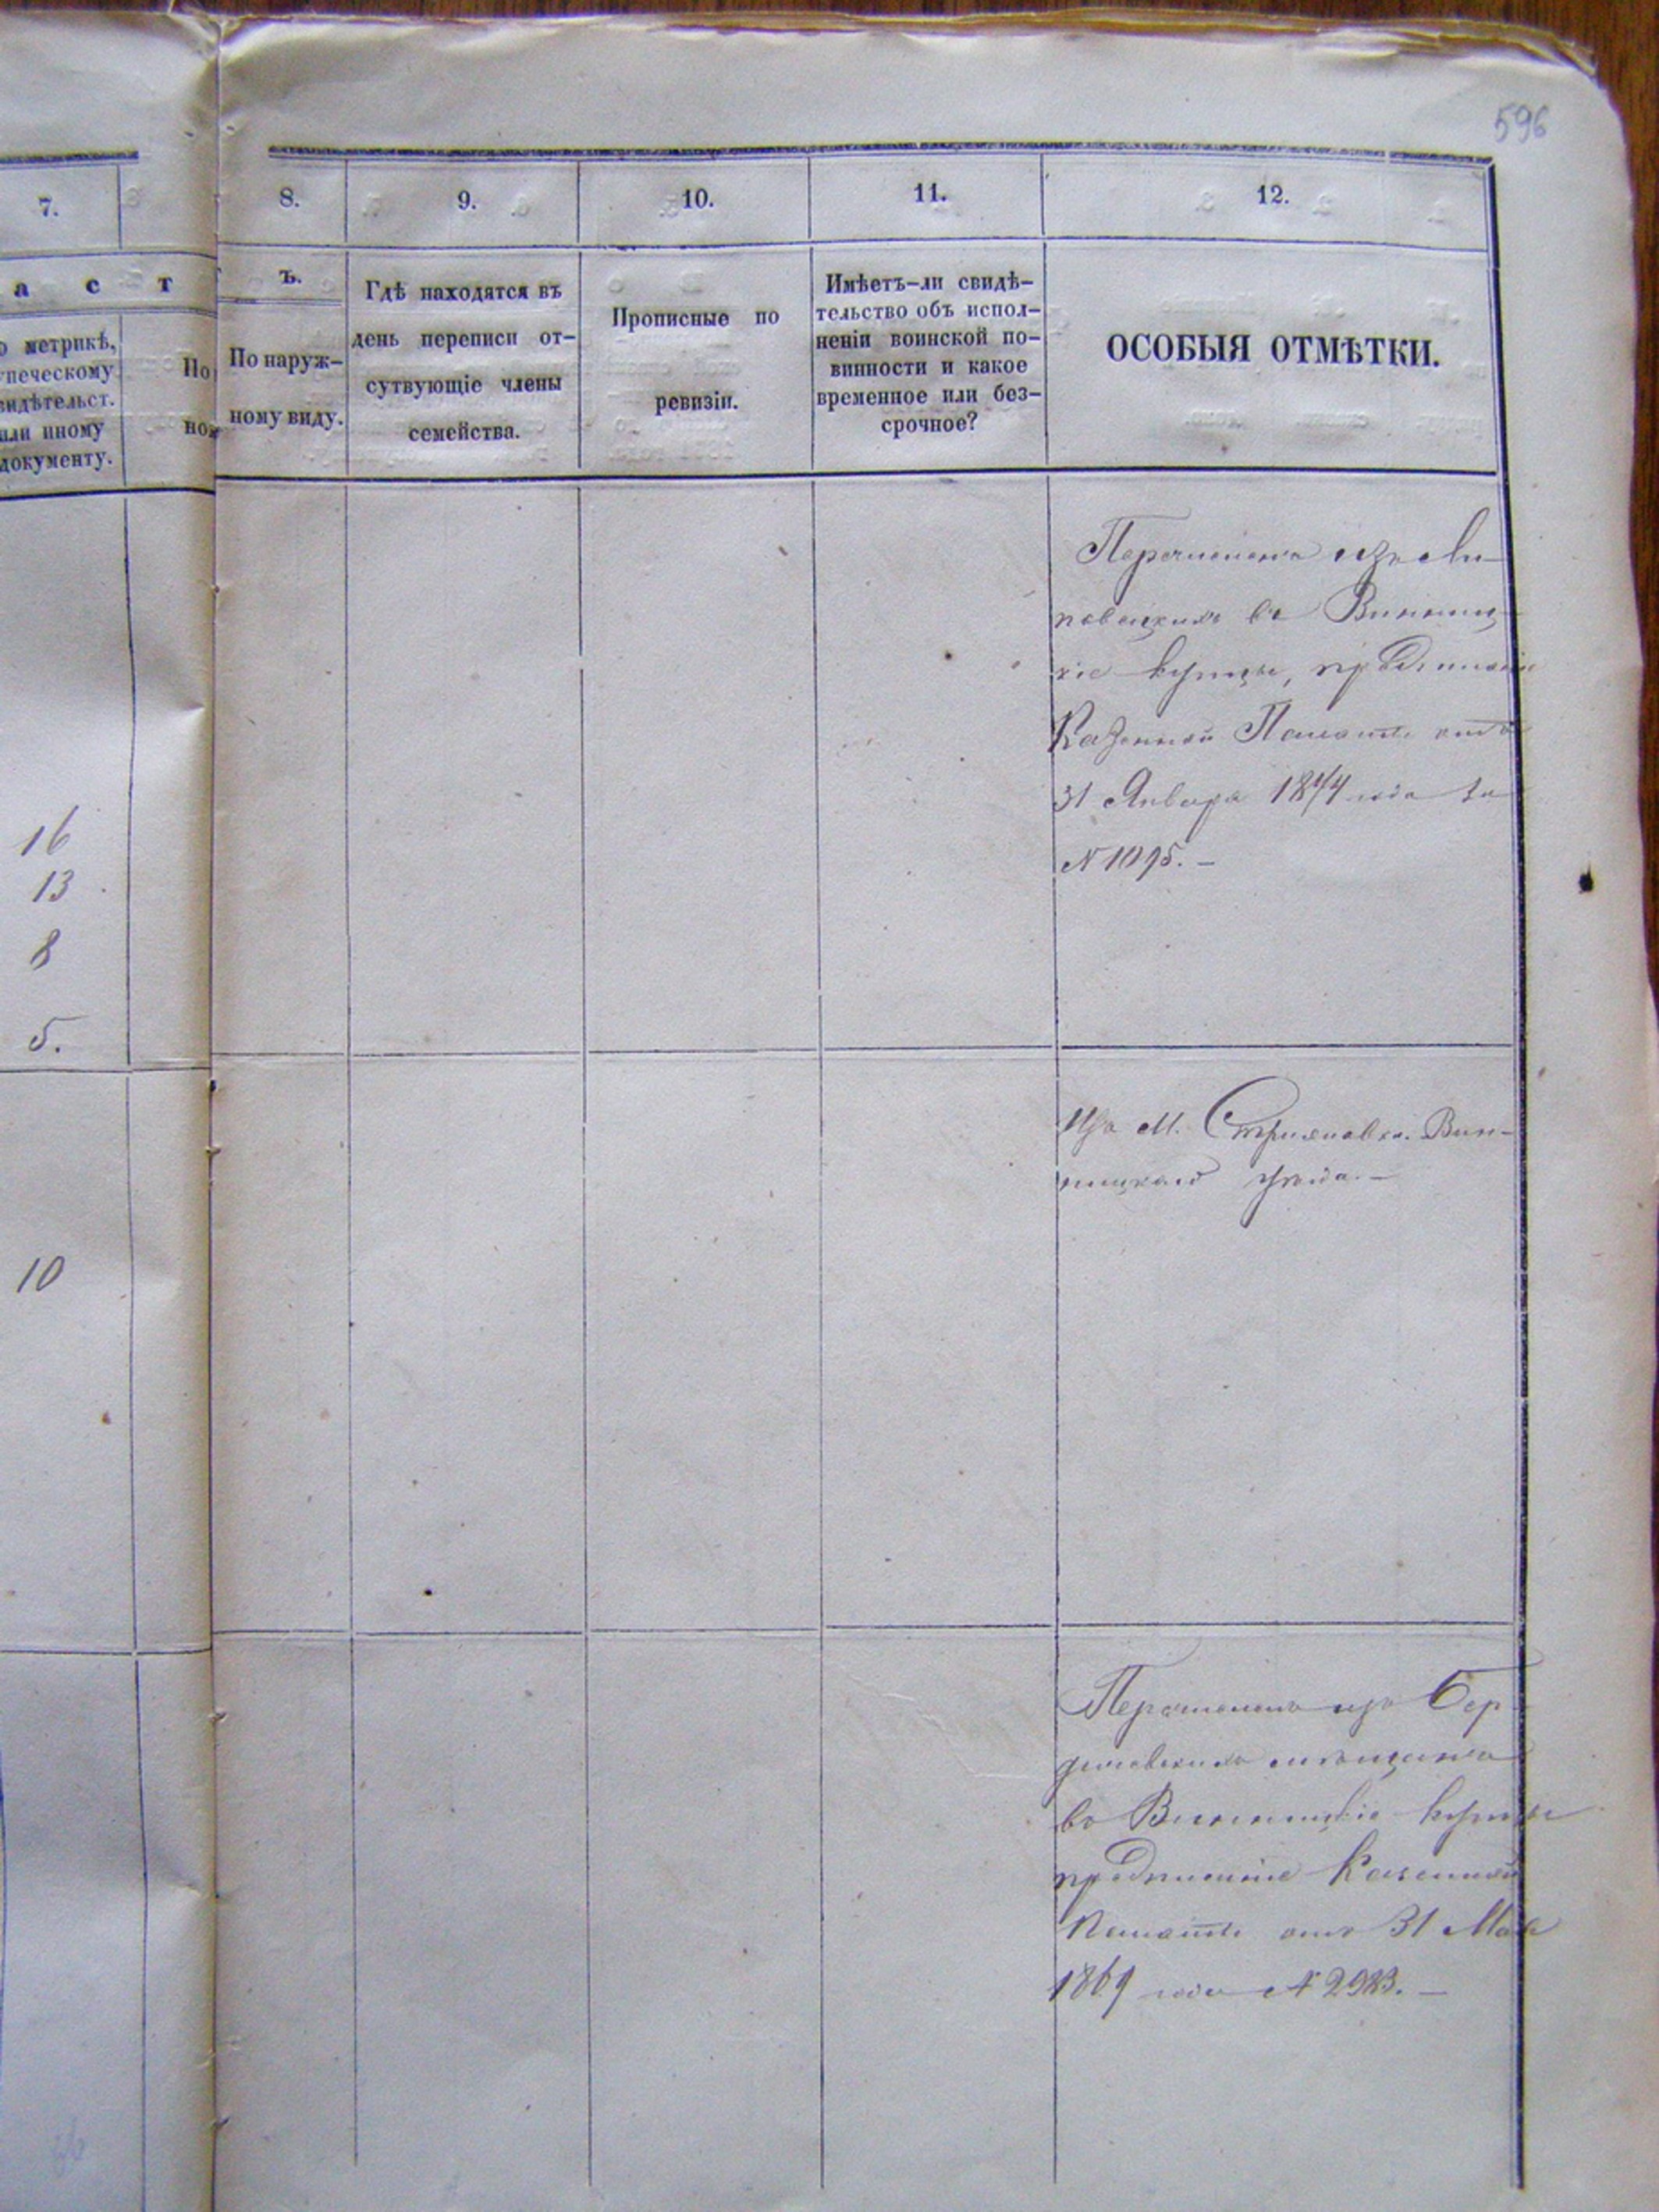 596
7.
8.
9.
10.
11.
12.
а с т
ъ.
о метрикѣ,
печескому
видѣтельст.
или иному
документу.
По
но
По наруж-
ному виду.
Гдѣ находятся въ
день переписи от-
сутвующіе члены
семейства.
Прописные по
ревизіи.
Имѣетъ-ли свидѣ-
тельство объ испол-
неніи воинской по-
винности и какое
временное или без-
срочное?
ОСОБЫЯ ОТМѢТКИ.
16
13
8
5.
10
Перечисленъ изъ Ли-
повецкихъ въ Винниц-
кіе купцы, предписаніе
Казенной Палаты отъ
31 Января года за
N 1095. –
Изъ М. Стрижавки Вин-
ницкаго уѣзда. –
Перечисленъ изъ Бер-
дичевскихъ мѣщанъ
въ Винницкіе купцы
предписаніе Казенной
Палаты отъ 31 Мая
1869 года N 2983. –